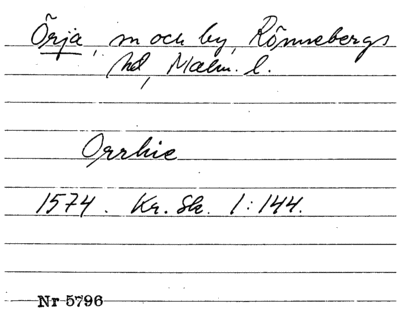 Örja, sn och by, Rönnebergs
hd, Malm. l.
Orrhie
1574. Kr. Sk. 1:144.
Nr 5796